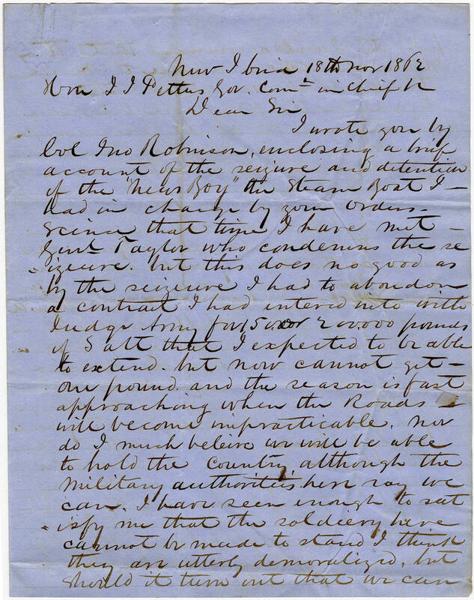 New Iberia 18th Nov 1862
Hon J J Pettus Gov. Comt in Chief &c
Dear Sir
I wrote you by
Col Jno Robinson, enclosing a brief
account of the seizure and detention
of the "News Boy" the Steam Boat I
had in charge by your orders
Scince that time I have met
Genl Taylor who condemns the se
izeure. but this does no good as
by the seizeure I had to abandon
a contract I had intered into with
Judge Avery for 150000 or 200000 pounds
of Salt that I expected to be able
to extend. but now cannot get
one pound and the season is fast
approaching when the Roads
will become impracticable. nor
do I much beleive we will be able
to hold the Country, although the
Military authorities here say we
can. I have seen enough to sat
isfy me that the soldiery here
cannot be made to stand I think
they are utterly demoralized, but
should it turn out that we can